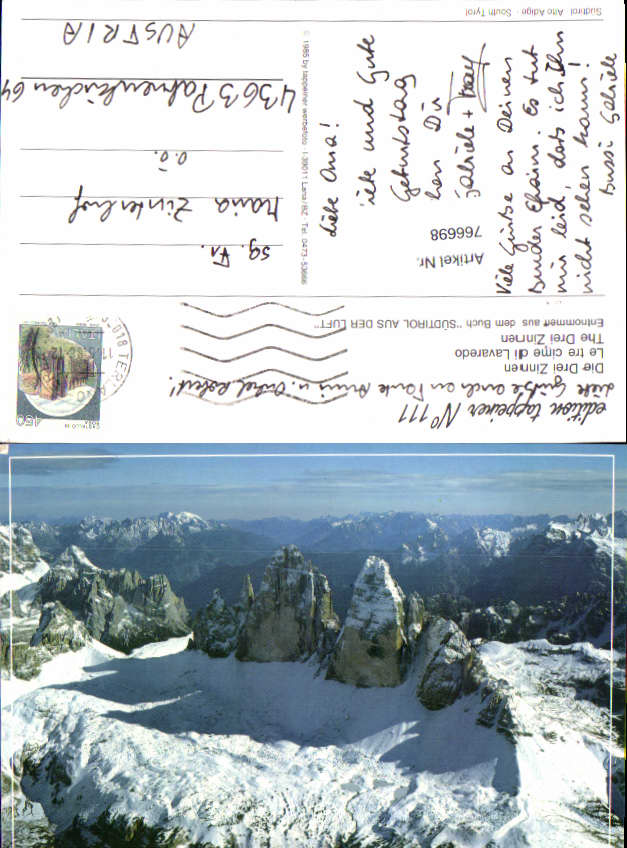 edition tappeiner N° 111
Die Drei Zinnen
Le tre cime di Lavaredo
The Drei Zinnen
Entnommen aus dem Buch "SÜDTIROL AUS DER LUFT"
Liebe Grüße auch an Tante Anni u. Onkel Robert!
Artikel Nr.
766698
Liebe Oma!
Liebe und Gute
Geburtstag
Gabriele +
Viele Grüße an Deinen
Bruder Efraim. Es tut
mir leid, dass ich Ihn
nicht sehen kann!
Bussi Gabriele
© 1985 by tappeiner werbefoto - I-39011 Lana/BZ - Tel. 0473-53666
450
Sg. Fr.
Maria
O.Ö.
4363 Pabneukirchen 64
AUSTRIA
Südtirol · Alto Adige · South Tyrol